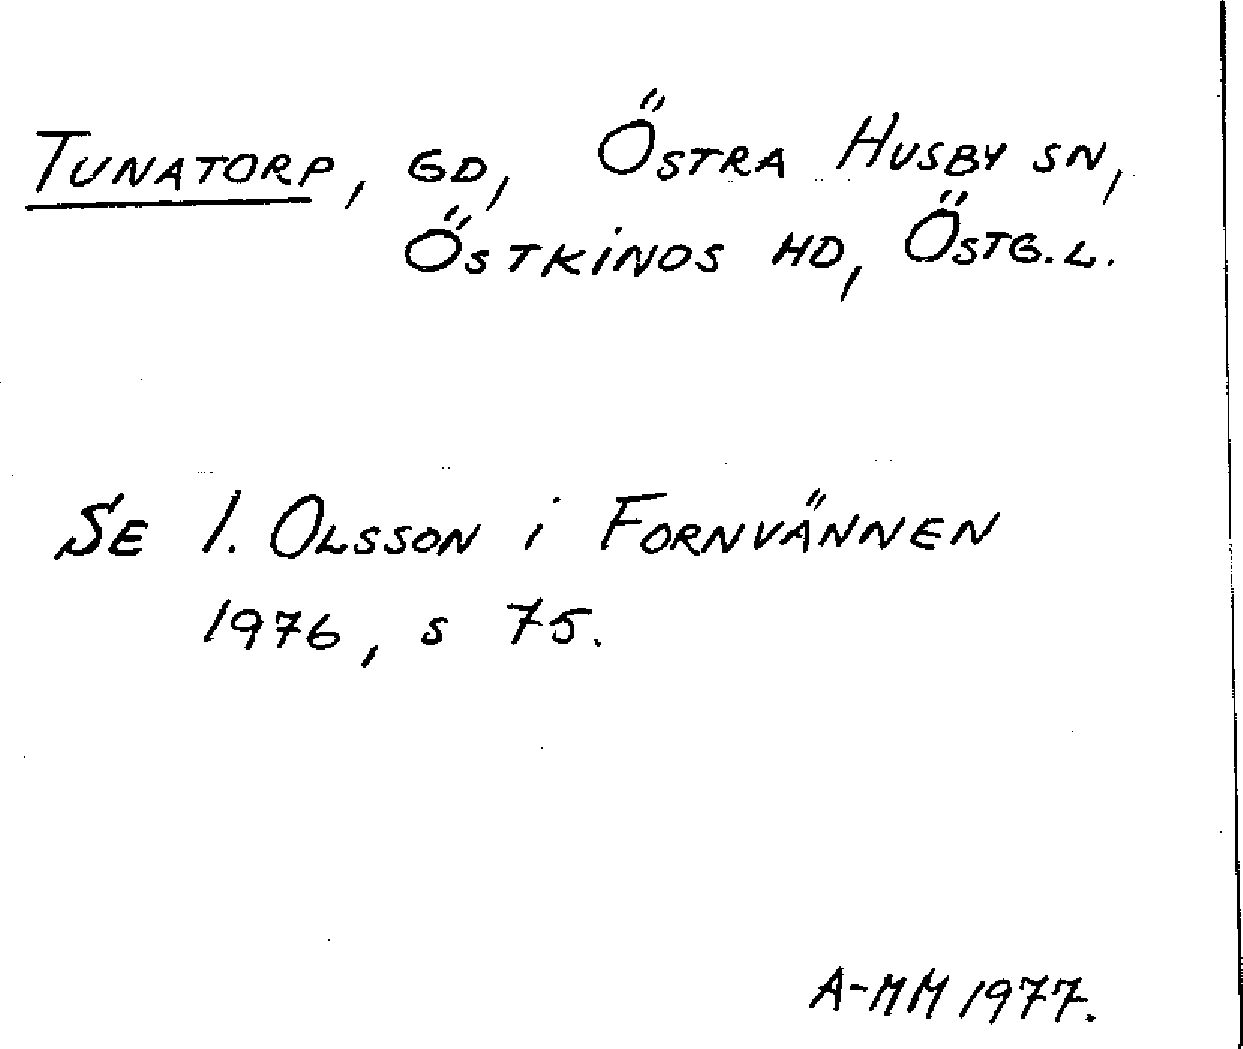 TUNATORP, GD, ÖSTRA HUSBY SN,
ÖSTKINDS HD, ÖSTG.L.
SE I. OLSSON i FORNVÄNNEN
1976, s 75.
A-MM 1977.